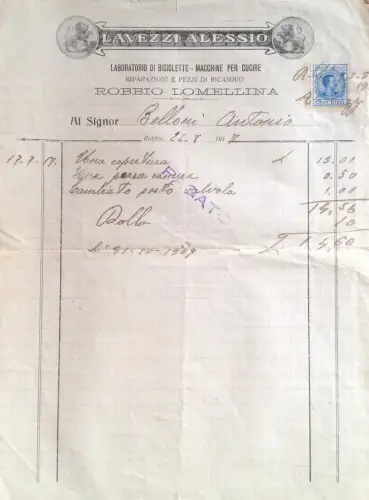 LAVEZZI ALESSIO
LABORATORIO DI BICICLETTE - MACCHINE PER CUCIRE
RIPARAZIONI E PEZZI DI RICAMBIO
ROBBIO LOMELLINA
Al Signor Belloni Antonio
Robbio, 22. 8 1917
17.7.17. Una copertura £ 13.00
Una pezza camera 0.50
Cambiato posto valvola 1.00
14.50
Bollo 10
£ 14.60